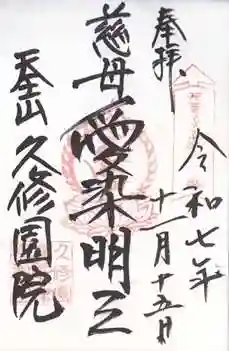 奉拝
令和七年
十一月十五日
慈母愛染明王
天王山
久修園院